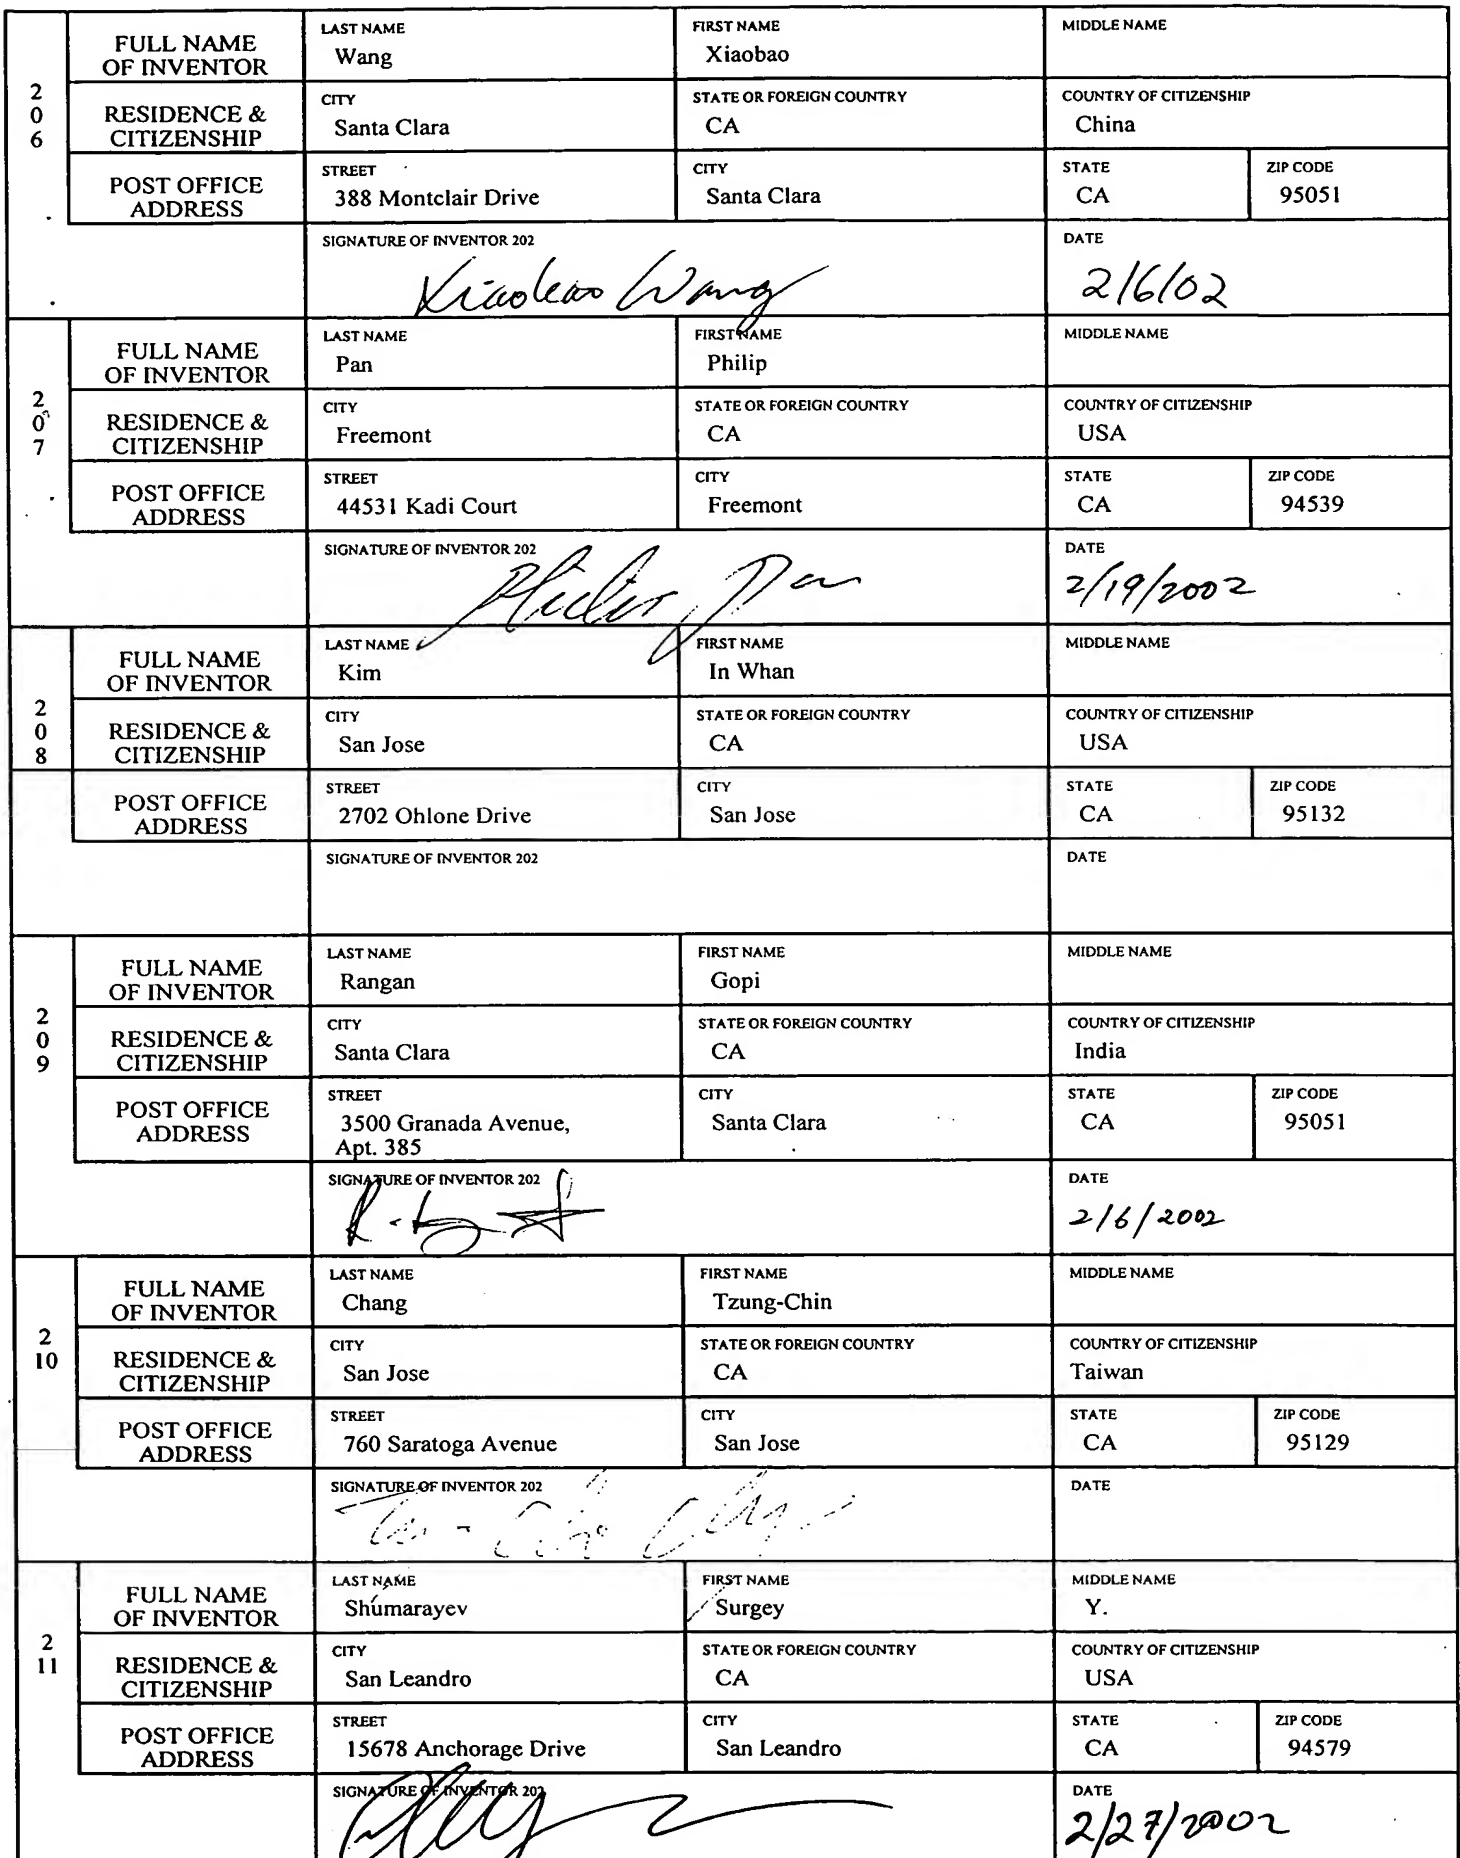 206
FULL NAME OF INVENTOR
LAST NAME
Wang
FIRST NAME
Xiaobao
MIDDLE NAME
RESIDENCE & CITIZENSHIP
CITY
Santa Clara
STATE OR FOREIGN COUNTRY
CA
COUNTRY OF CITIZENSHIP
China
POST OFFICE ADDRESS
STREET
388 Montclair Drive
CITY
Santa Clara
STATE
CA
ZIP CODE
95051
SIGNATURE OF INVENTOR 202
Xiaobao Wang
DATE
2/6/02
207
FULL NAME OF INVENTOR
LAST NAME
Pan
FIRST NAME
Philip
MIDDLE NAME
RESIDENCE & CITIZENSHIP
CITY
Freemont
STATE OR FOREIGN COUNTRY
CA
COUNTRY OF CITIZENSHIP
USA
POST OFFICE ADDRESS
STREET
44531 Kadi Court
CITY
Freemont
STATE
CA
ZIP CODE
94539
SIGNATURE OF INVENTOR 202
Philip Pan
DATE
2/19/2002
208
FULL NAME OF INVENTOR
LAST NAME
Kim
FIRST NAME
In Whan
MIDDLE NAME
RESIDENCE & CITIZENSHIP
CITY
San Jose
STATE OR FOREIGN COUNTRY
CA
COUNTRY OF CITIZENSHIP
USA
POST OFFICE ADDRESS
STREET
2702 Ohlone Drive
CITY
San Jose
STATE
CA
ZIP CODE
95132
SIGNATURE OF INVENTOR 202
DATE
209
FULL NAME OF INVENTOR
LAST NAME
Rangan
FIRST NAME
Gopi
MIDDLE NAME
RESIDENCE & CITIZENSHIP
CITY
Santa Clara
STATE OR FOREIGN COUNTRY
CA
COUNTRY OF CITIZENSHIP
India
POST OFFICE ADDRESS
STREET
3500 Granada Avenue,
Apt. 385
CITY
Santa Clara
STATE
CA
ZIP CODE
95051
SIGNATURE OF INVENTOR 202
DATE
2/6/2002
210
FULL NAME OF INVENTOR
LAST NAME
Chang
FIRST NAME
Tzung-Chin
MIDDLE NAME
RESIDENCE & CITIZENSHIP
CITY
San Jose
STATE OR FOREIGN COUNTRY
CA
COUNTRY OF CITIZENSHIP
Taiwan
POST OFFICE ADDRESS
STREET
760 Saratoga Avenue
CITY
San Jose
STATE
CA
ZIP CODE
95129
SIGNATURE OF INVENTOR 202
DATE
211
FULL NAME OF INVENTOR
LAST NAME
Shumarayev
FIRST NAME
Surgey
MIDDLE NAME
Y.
RESIDENCE & CITIZENSHIP
CITY
San Leandro
STATE OR FOREIGN COUNTRY
CA
COUNTRY OF CITIZENSHIP
USA
POST OFFICE ADDRESS
STREET
15678 Anchorage Drive
CITY
San Leandro
STATE
CA
ZIP CODE
94579
SIGNATURE OF INVENTOR 202
DATE
2/27/2002